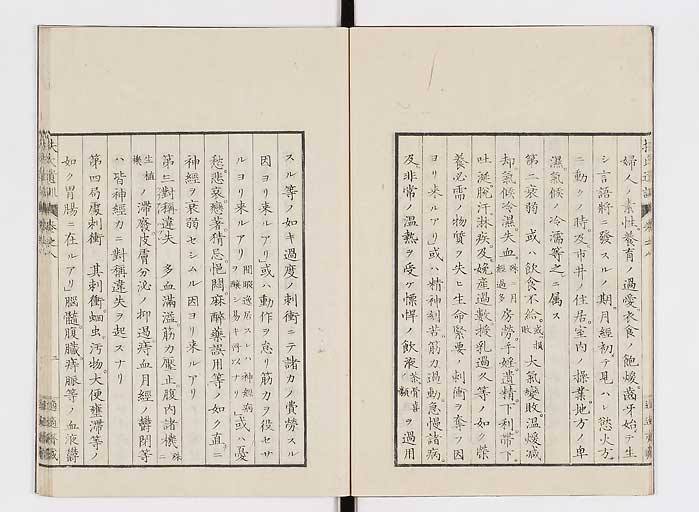 扶氏遺訓 卷之八
婦人ノ素性養育ノ過愛衣食ノ飽煖齒牙始テ生
シ言語將ニ發スルノ期月經初テ見ハレ慾火方
ニ動クノ時及市井ノ住居室內ノ操業地方ノ卑
濕氣候ノ冷濡等之ニ属ス
第二衰弱 或ハ飲食不給或損敗大氣變敗溫煖減
却氣候冷濕失血殊ニ月經過多房勞手婬遺精下利帶下
吐涎脫汗淋疾及娩產過數授乳過久等ノ如ク榮
養必需ノ物質ヲ失ヒ生命緊要ノ刺衝ヲ奪フ因
ヨリ来ルアリ或ハ精神刻苦筋力過動急慢諸病
及非常ノ溫熱ヲ受ケ慓悍ノ飲液茶骨喜ノ類ヲ過用
スル等ノ如キ過度ノ刺衝ニテ諸力ノ費勞スル
因ヨリ来ルアリ或ハ動作ヲ怠リ筋力ヲ役セサ
ルヨリ来ルアリ閒暇逸居スレハ神經病ヲ釀シ易キ所以ナリ或ハ憂
愁悲哀戀著猜忌悒閼麻醉藥誤用等ノ如ク直ニ
神經ヲ衰弱セシムル因ヨリ来ルアリ
第三對稱違失 多血滿溢筋力壓止腹內諸機殊ニ
生植機ノ滯廢皮膚分泌ノ抑遏痔血月經ノ欝閉等
ハ皆神經力ニ對稱違失ヲ起スナリ
第四局處刺衝 其刺衝蛔虫汚物大便壅滯等ノ
如ク胃腸ニ在ルアリ腦髓腹臟痔脈等ノ血液欝
扶氏遺訓 卷之八
適適齋藏